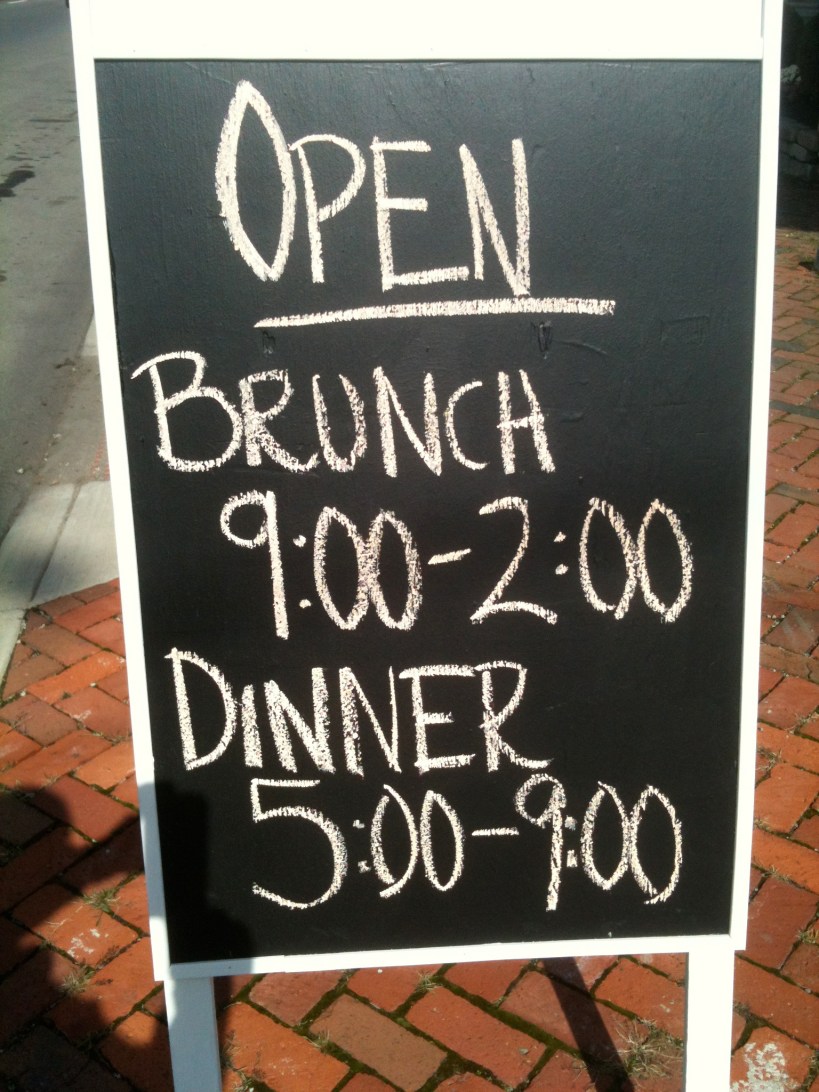 OPEN
BRUNCH
9:00-2:00
DINNER
5:00-9:00